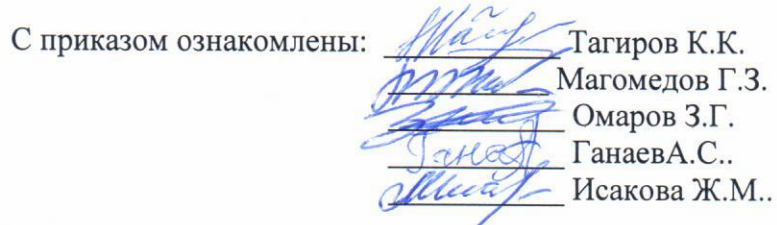 С приказом ознакомлены: Тагиров К.К.
Магомедов Г.З.
Омаров З.Г.
ГанаевА.С..
Исакова Ж.М..